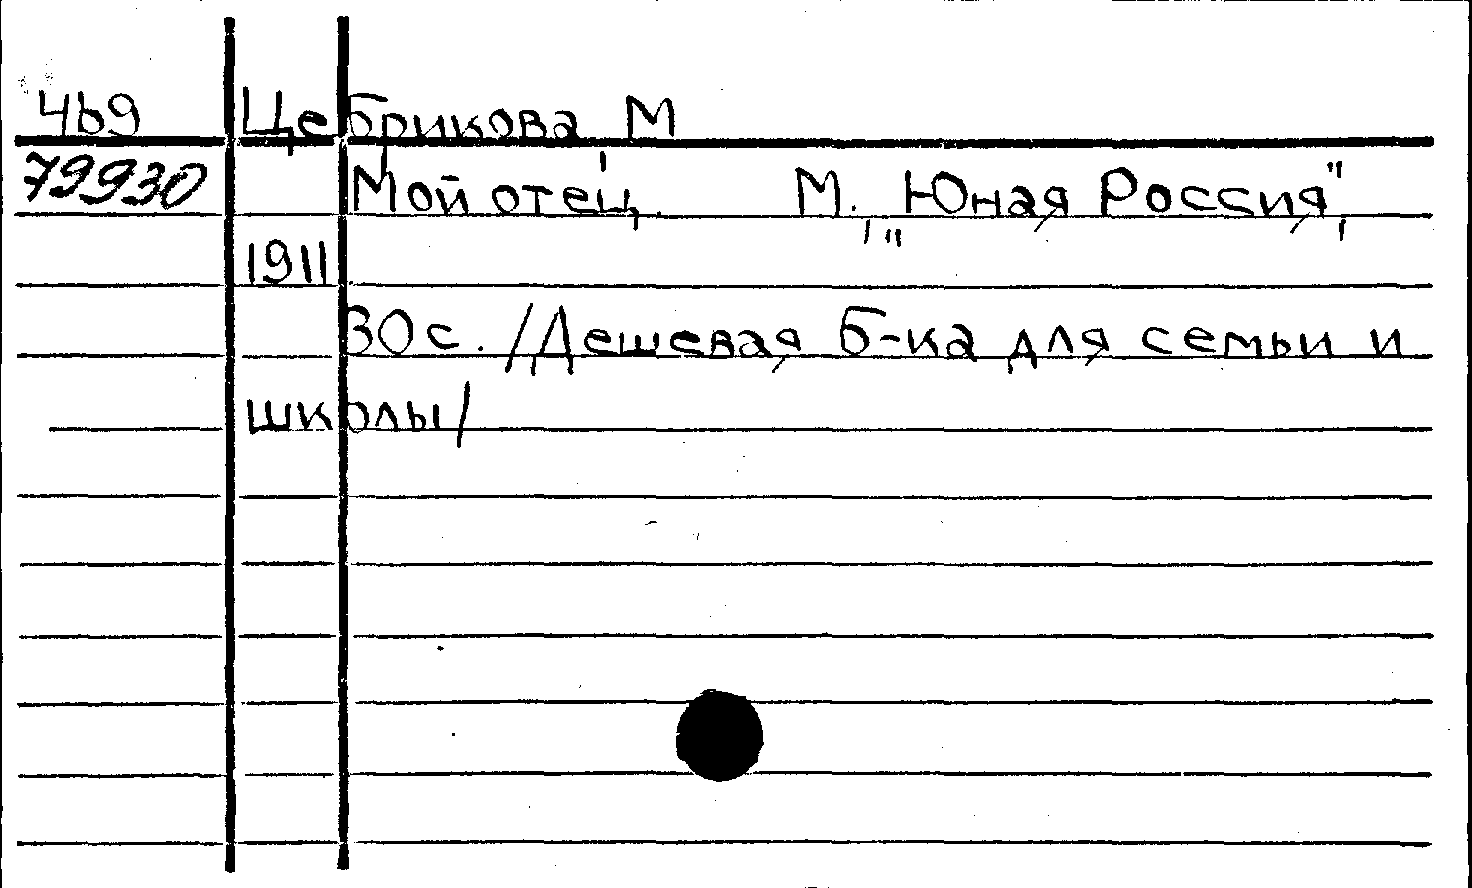 469 Цебрикова, М
79930 Мой отец. М., "Юная Россия",
1911
30 с. /Дешевая б-ка для семьи и
школы/